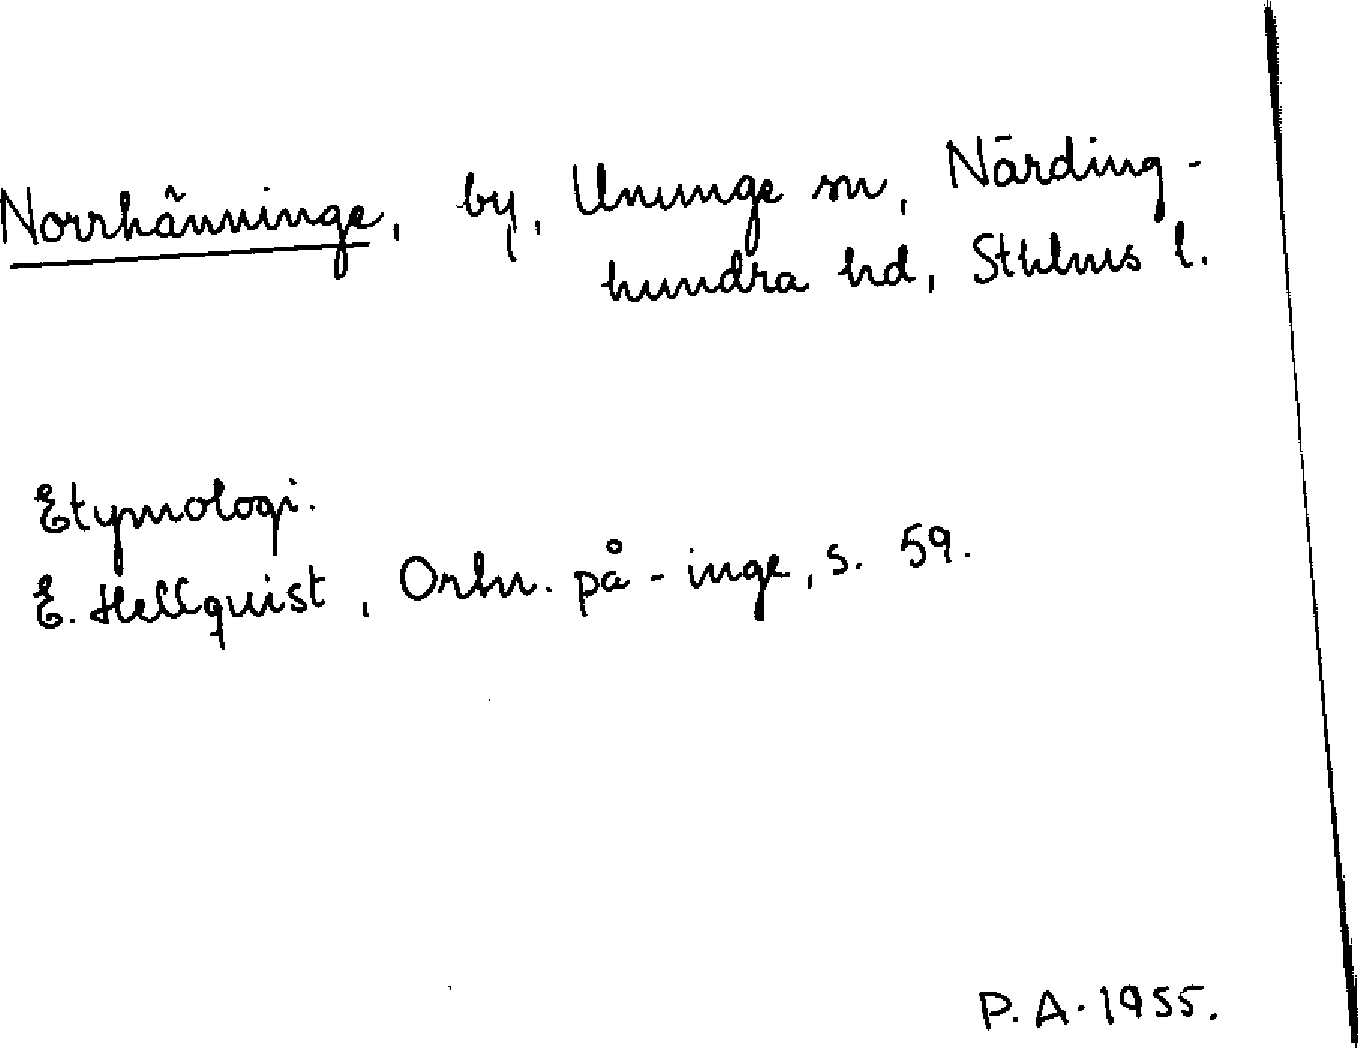 Norrhänninge, by, Ununge sn, Närding-
hundra hd, Sthlms l.
Etymologi.
E. Hellquist, Ortn. på -inge, s. 59.
P. A. 1955.